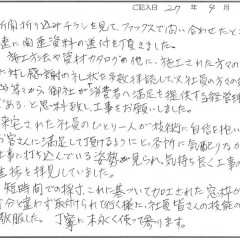 ご記入日 27年4月
新聞折り込みチラシを見て、ファックスで問い合わせたところ
速に関連資料の送付を頂きました。
施工方法や資材カタログの他に、施工された方々の
お材し感謝の礼状を数多拝読して、
皆さんから御社が消費者へ満足を提供する経営理
である」と思料致し工事をお願いしました。
来宅された社員のひとり一人が技術に自信を抱い
お客さんに満足して頂けるようにと、余計に気配りなが
仕事に打ち込んでいる姿勢が見られ、気持ち良く工事の
進捗を拝見していました。
短時間での採寸、これに基いて加工された窓枠が
寸分と違わず取付けられて行く様に、社員皆さんの技能の
敬服した。丁寧に末永く使って参ります。